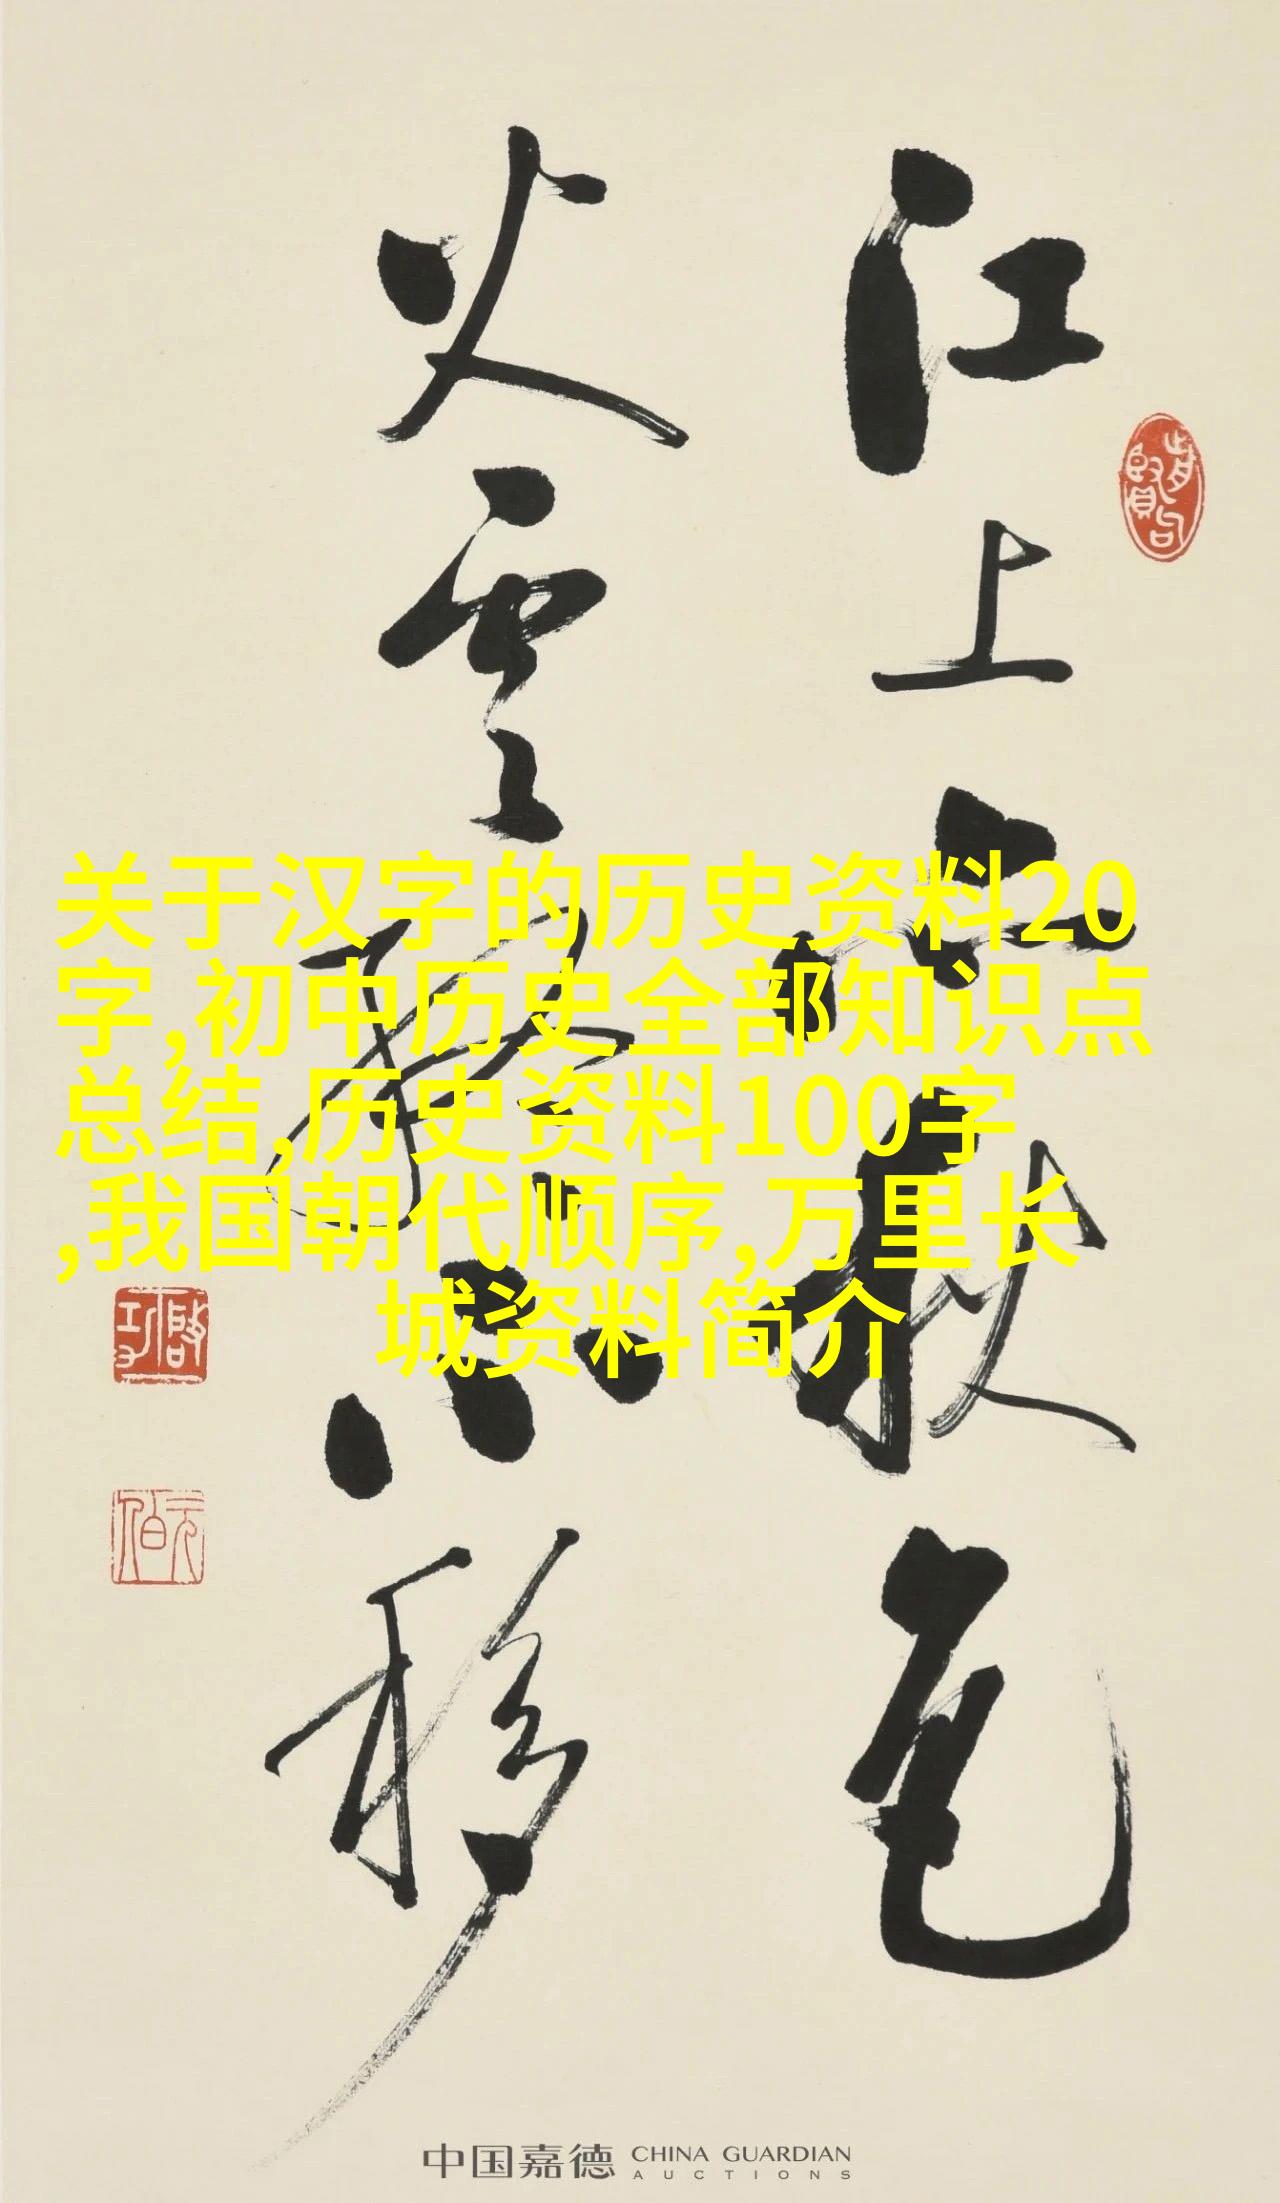 江上亦秋色
火雲終不移
关于汉字的历史资料20
字,初中历史全部知识点
总结,历史资料100字
,我国朝代顺序,万里长
城资料简介
啟功
元伯
中国嘉德 CHINA GUARDIAN
AUCTIONS